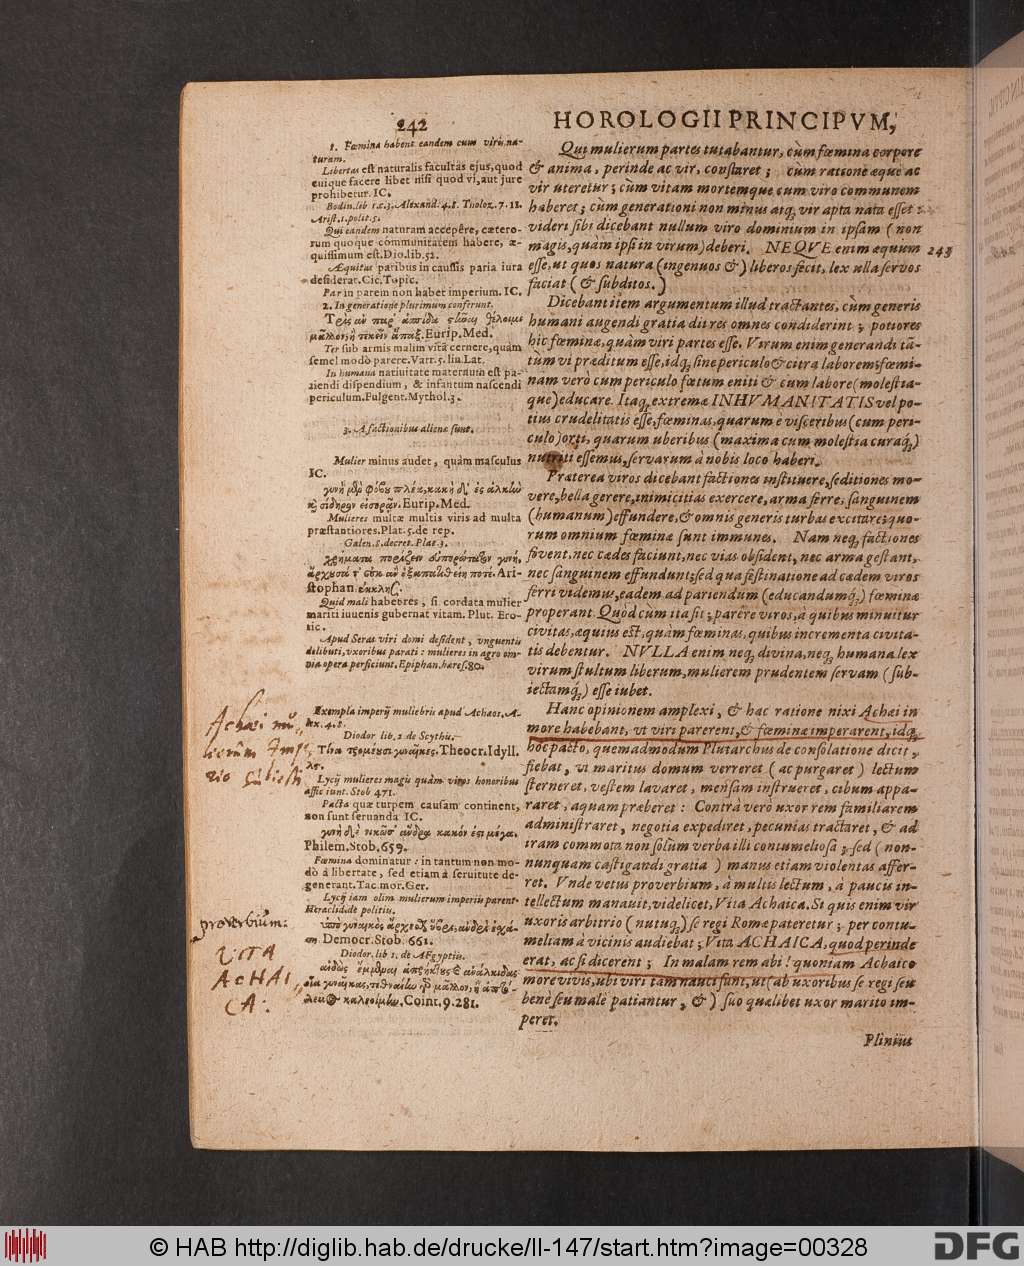 242
HOROLOGII PRINCIPVM,
1. Fœmina habent eandem cum viris na-
turam.
Libertas est naturalis facultas ejus, quod
cuique facere libet nisi quod vi, aut jure
prohibetur. IC.
Bodin. lib 1. c. 3. Alexand. 4. 8. Tholoz. 7. 11.
Arist. 1. polit. 5.
Qui eandem naturam accepêre, cætero-
rum quoque communitatem habere, æ-
quissimum est. Dio. lib. 52.
Æquitas paribus in caussis paria iura
desiderat. Cic. Topic.
Par in parem non habet imperium. IC.
2. In generatione plurimum conferunt.
μᾶλλον, ἢ τεκεῖν ἅπαξ. Eurip. Med.
Ter sub armis malim vitā cernere, quàm
semel modò parere. Varr. 5. lin. Lat.
In humana nativitate maternum est pa-
riendi dispendium, & infantum nascendi
periculum. Fulgent. Mythol. 3.
3. A factionibus aliena sunt.
Mulier minus audet, quàm masculus
IC.
Eurip. Med.
Mulieres multæ multis viris ad multa
præstantiores. Plat. 5. de rep.
Galen. 8. decret. Plat. 3.
Ari-
stophan.
Quid mali haberes, si cordata mulier
mariti iuvenis gubernat vitam. Plut. Ero-
tic.
Apud Seras viri domi desident, vnguentis
delibuti, vxoribus parati: mulieres in agro om-
nia opera perficiunt. Epiphan. hæres. 80.
Exempla imperij muliebris apud Achæos, A-
lex. 4. 8.
Diodor lib. 2 de Scythis.
Theocr. Idyll.
Lycij mulieres magis quàm viros honoribus
afficiunt. Stob 471.
Pacta quæ turpem causam continent,
non sunt seruanda IC.
Philem. Stob. 659.
Fœmina dominatur: in tantum non mo-
dò à libertate, sed etiam à seruitute de-
generant. Tac. mor. Ger.
Lycij iam olim mulierum imperiū parent.
Heraclid. de politiis.
Democr. Stob. 661.
Diodor. lib 1. de Ægyptiis.
Coint. 9. 281.
Qui mulierum partes tutabantur, cùm fœmina corpore
& anima, perinde ac vir, constaret; cum ratione æque ac
vir uteretur; cum vitam mortemque cum viro communem
haberet; cùm generationi non minus atq; vir apta nata esset:
videri sibi dicebant nullum viro dominium in ipsam (non
magis, quàm ipsi in virum) deberi. NEQVE enim æquum
esse, ut quos natura (ingenuos &) liberos fecit, lex ulla servos
faciat (& subditos.)
243
Dicebant item argumentum illud tractantes, cùm generis
humani augendi gratia dii res omnes condiderint; potiores
hîc fœminæ, quàm viri partes esse. Virum enim generandi tā-
tùm vi præditum esse, idq; sine periculo & citra laborem; fœmi-
nam verò cum periculo fœtum eniti & cum labore (molestia-
que) educare. Itaq; extremæ INHVMANITATIS vel po-
tius crudelitatis esse, fœminas, quarum è visceribus (cum peri-
culo) orti, quarum uberibus (maxima cum molestia curaq;)
nutriti essemus, servarum à nobis loco haberi.
Præterea viros dicebant factiones instituere, seditiones mo-
vere, bella gerere, inimicitias exercere, arma ferre, sanguinem
(humanum) effundere, & omnis generis turbas excitare; quo-
rum omnium fœminæ sunt immunes. Nam neq; factiones
fovent, nec cædes faciunt, nec vias obsident, nec arma gestant,
nec sanguinem effundunt; sed qua festinatione ad cædem viros
ferri videmus, eadem ad pariendum (educandumq;) fœminæ
properant. Quòd cùm ita sit; parêre viros, à quibus minuitur
civitas, æquius est, quàm fœminas, quibus incrementa civita-
tis debentur. NVLLA enim neq; divina, neq; humana lex
virum stultum liberum, mulierem prudentem servam (sub-
iectamq;) esse iubet.
Hanc opinionem amplexi, & hac ratione nixi Achæi in
more habebant, ut viri parerent, & fœminæ imperarent, idq;
hoc pacto, quemadmodum Plutarchus de consolatione dicit,
fiebat, ut maritus domum verreret (ac purgaret) lectum
sterneret, vestem lavaret, mensam instrueret, cibum appa-
raret, aquam præberet: Contrà verò uxor rem familiarem
administraret, negotia expediret, pecunias tractaret, & ad
iram commota non solùm verba illi contumeliosa; sed (non-
nunquam castigandi gratia) manus etiam violentas affer-
ret. Vnde vetus proverbium, à multis lectum, à paucis in-
tellectum manauit, videlicet, Vita Achaica. Si quis enim vir
uxoris arbitrio (nutuq;) se regi Romæ pateretur; per contu-
meliam à vicinis audiebat; Vita ACHAICA, quod perinde
erat, ac si dicerent; In malam rem abi! quoniam Achaico
more vivis, ubi viri tam nauci sunt, ut (ab uxoribus se regi seu
benè seu malè patiantur, &) suo quælibet uxor marito im-
peret.
Plinius
Achæi mu-
lierum Impe
rio subiecti
proverbium:
VITA
ACHAI,,
CA:
© HAB http://diglib.hab.de/drucke/ll-147/start.htm?image=00328
DFG